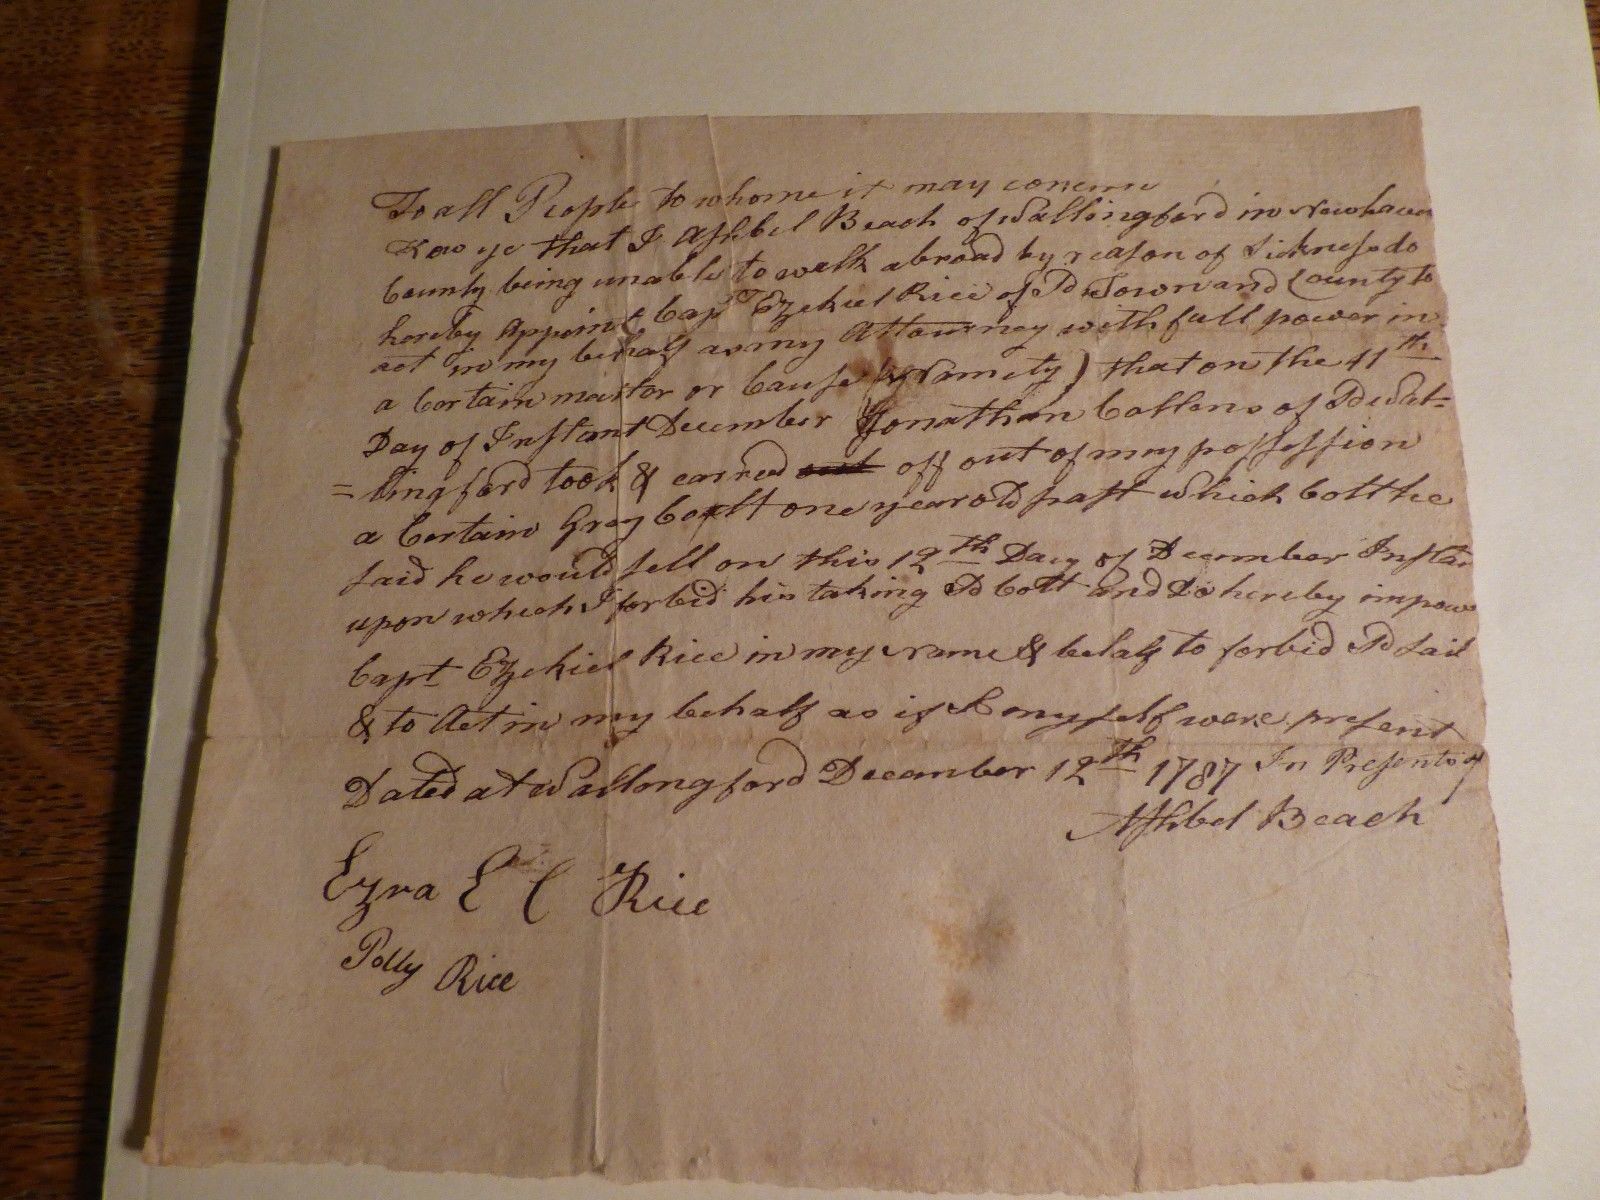 To all People to whome it may concern
Know ye that I Ashbel Beach of Wallingford in Newhaven
County being unable to walk abroad by reason of Sickness do
hereby Appoint Capt Ezekiel Rice of Sd Town and County to
act in my behalf as my Attourney with full power in
a Certain matter or Cause (Namely) that on the 11th
Day of Instant December Jonathan Collens of Sd Wal=
=lingford took & carred out off out of my possession
a Certain Grey Coalt one year old past which Colt he
said he would sell on this 12th Day of December Instant
upon which I forbid his taking Sd Colt and do hereby impower
Capt Ezekiel Rice in my name & behalf to forbid Sd sail
& to Act in my behalf as if I myself were present
Dated at Wallongford December 12th 1787 In Presents of
Ashbel Beach
Ezra E C Rice
Polly Rice